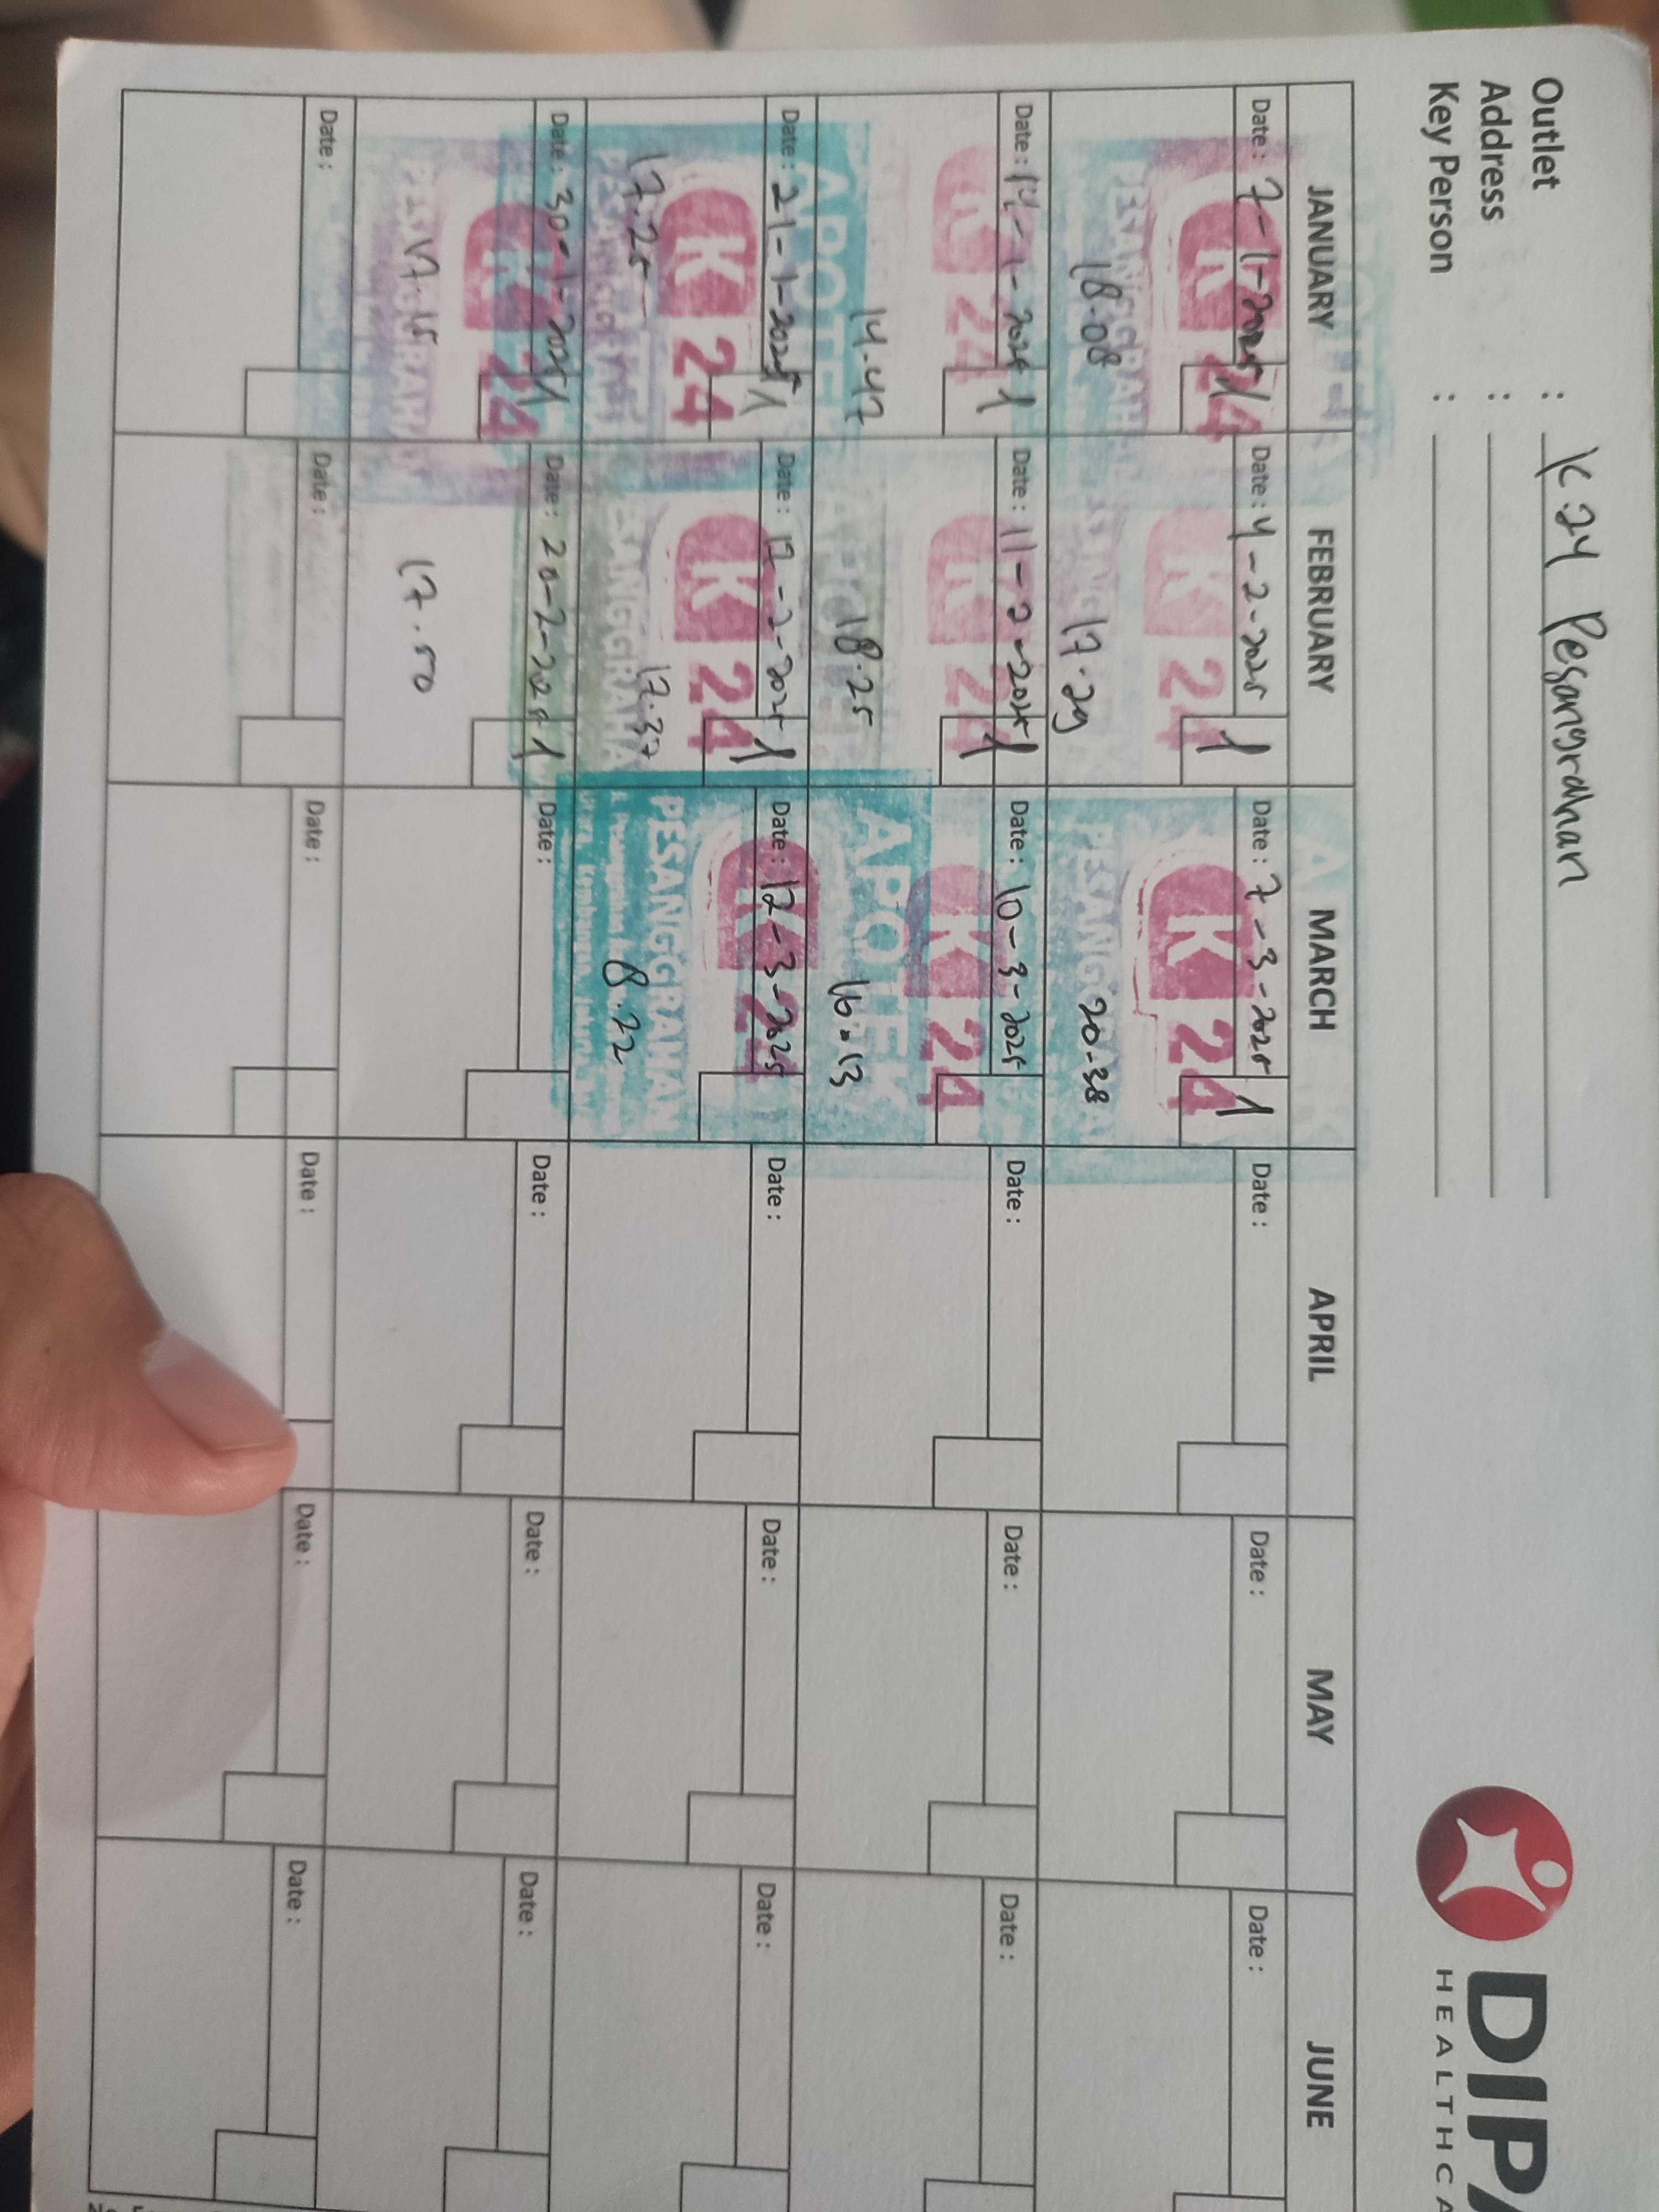 Outlet : K.24 Pesangrahan
Address :
Key Person :
DIPA
HEALTHCA
JANUARY FEBRUARY MARCH APRIL MAY JUNE
Date : 7-1-2025 1 Date : 4-2-2025 1 Date : 7-3-2025 1 Date : Date : Date :
K 24 K 24 K 24
18.08 17.29 20.38
PESANGGRAHAN PESANGGRAHAN PESANGGRAHAN
Date : 14-1-2025 1 Date : 11-2-2025 1 Date : 10-3-2025 Date : Date : Date :
K 24 K 24 K 24
14.47 18.25 16.13
APOTEK APOTEK APOTEK
Date : 21-1-2025 1 Date : 17-2-2025 1 Date : 17-3-2025 Date : Date : Date :
K 24 K 24 K 24
17.25 17.37 8.22
PESANGGRAHAN PESANGGRAHAN
Date : 30-1-2025 1 Date : 20-2-2025 1 Date : Date : Date : Date :
K 24
17.15 17.50
PESANGGRAHAN
Date : Date : Date : Date : Date : Date :